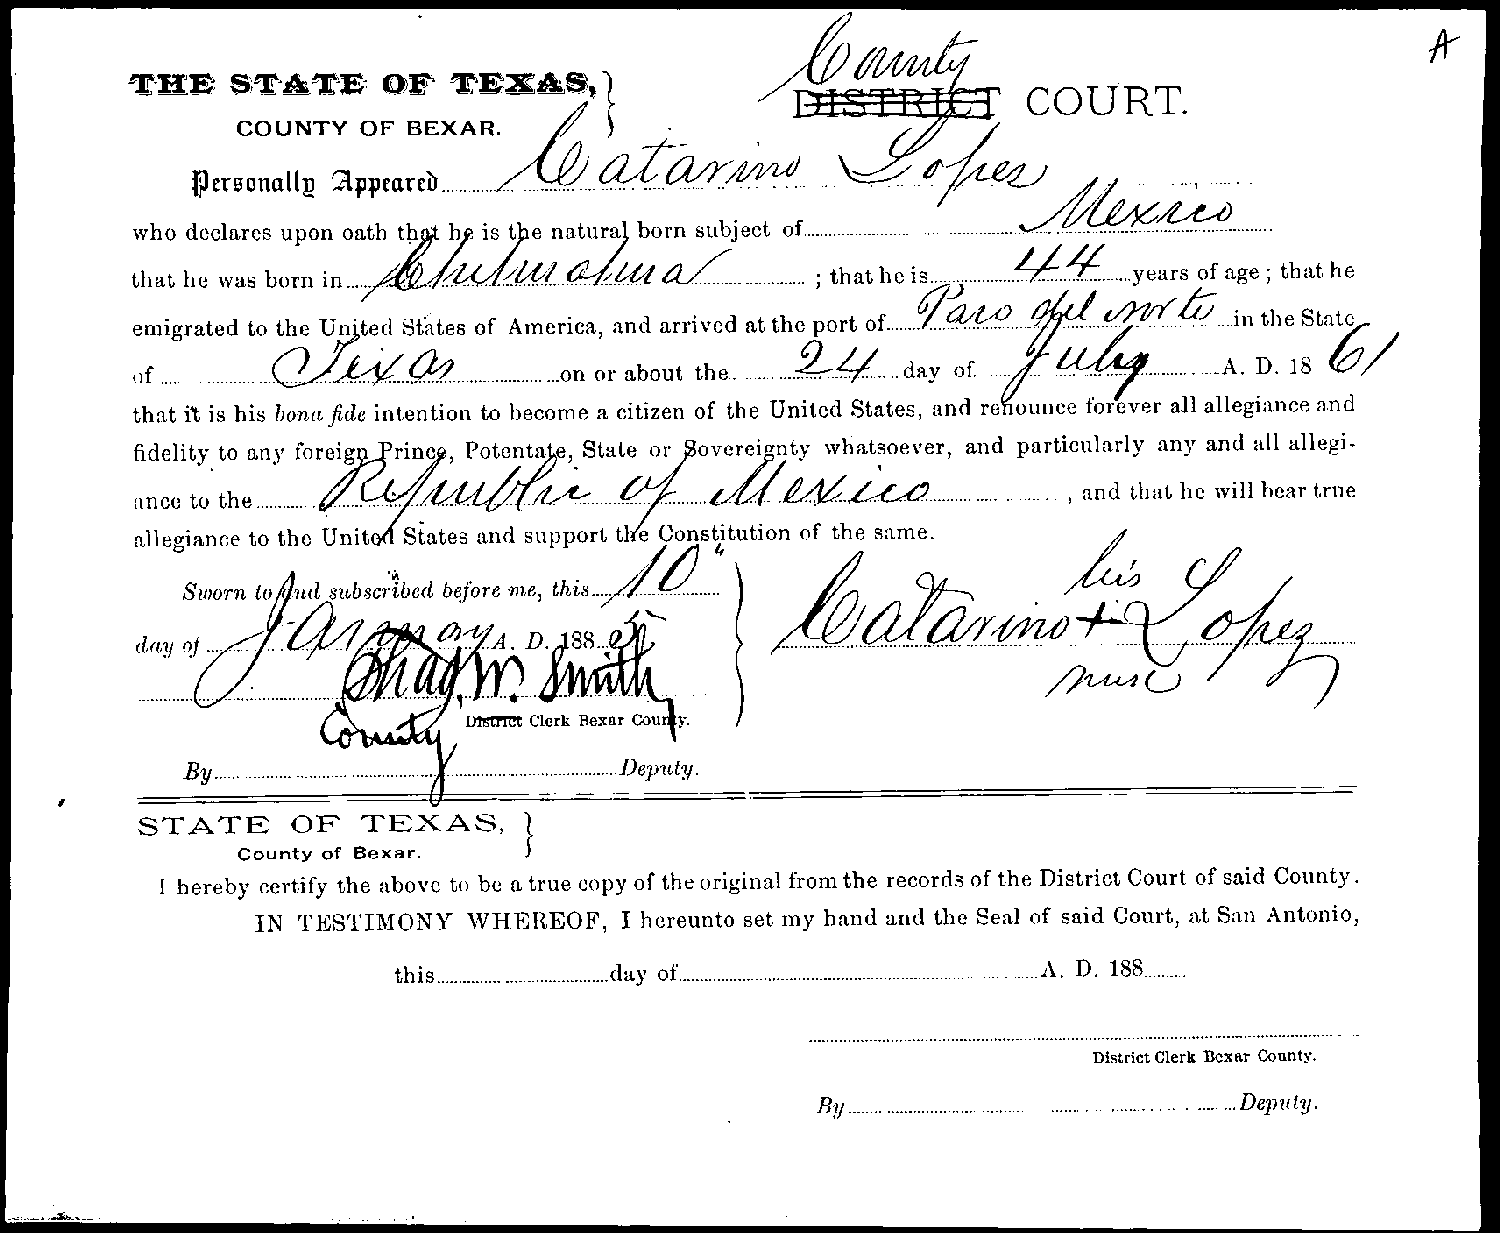 A
County
THE STATE OF TEXAS, } DISTRICT COURT.
COUNTY OF BEXAR.
Personally Appeared Catarino Lopez
who declares upon oath that he is the natural born subject of Mexico
that he was born in Chihuahua ; that he is 44 years of age ; that he
emigrated to the United States of America, and arrived at the port of Paso del norte in the State
of Texas on or about the 24 day of July A. D. 1861
that it is his bona fide intention to become a citizen of the United States, and renounce forever all allegiance and
fidelity to any foreign Prince, Potentate, State or Sovereignty whatsoever, and particularly any and all allegi-
ance to the Republic of Mexico , and that he will bear true
allegiance to the United States and support the Constitution of the same.
Sworn to and subscribed before me, this 10"
day of January A. D. 188
Thad. W. Smith
County District Clerk Bexar County.
By Deputy.
his
Catarino + Lopez
mark
STATE OF TEXAS, }
County of Bexar.
I hereby certify the above to be a true copy of the original from the records of the District Court of said County.
IN TESTIMONY WHEREOF, I hereunto set my hand and the Seal of said Court, at San Antonio,
this day of A. D. 188
District Clerk Bexar County.
By Deputy.